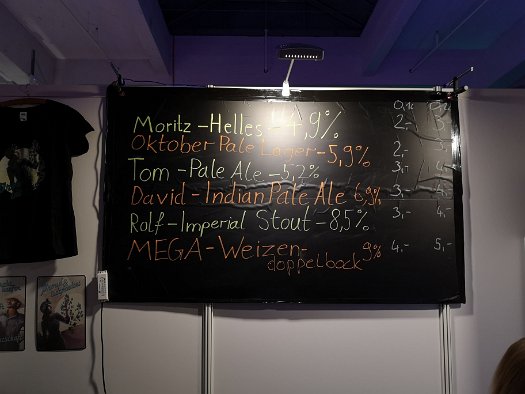 0,1l
Moritz - Helles - 4,9% 2,- 3,-
Oktober Pale Lager - 5,9% 2,- 3,-
Tom - Pale Ale - 5,2% 3,- 4,-
David - Indian Pale Ale 6,9% 3,- 4,-
Ralf - Imperial Stout - 8,5% 3,- 4,-
MEGA - Weizen- 9% 4,- 5,-
doppelbock